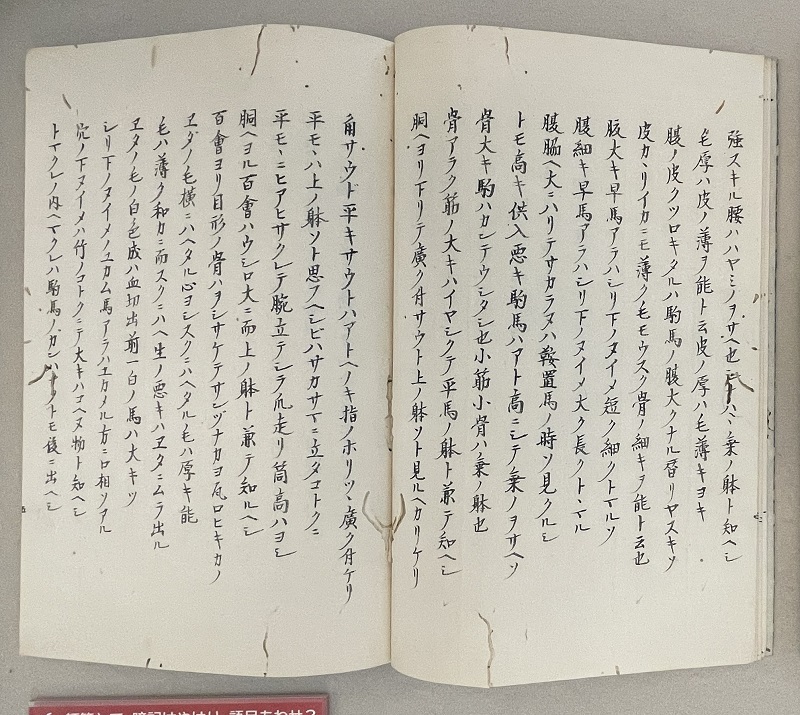 強スキル腰ハハヤミノヲサヘ也 ハ乗ノ躰ト知ヘシ
毛厚ハ皮ノ薄ヲ能ト云皮ノ厚ハ毛薄キヨキ
腹ノ皮クツロキタルハ駒馬ノ腹大クナル脣リヤスキソ
皮カヽリイカニモ薄ク毛モウスク骨ノ細キヲ能ト云也
腹大キ早馬アラハシリ下ノヌイメ短ク細クトマルソ
腹細キ早馬アラハシリ下ノヌイメ大ク長クトヽマル
腹脇ヘ大ニハリテサカラヌハ鞍置馬ノ時ソ見クルシ
トモ高キ供入悪キ駒馬ハアト高ニシテ乗ノヲサヘソ
骨大キ駒ハカンテウシタシ也小筋小骨ハ乗ノ躰也
骨アラク筋ノ大キハイヤシクテ平馬ノ躰ト兼テ知ヘシ
胴ヘヨリ下リテ廣ク付サウト上ノ躰ソト見ルヘカリケリ
角サウド平キサウトハアトヘノキ指ノホリツヽ廣ク付ケリ
平モヽハ上ノ躰ソト思フヘシヒハサカサマニ立タコトクニ
平モヽニヒアヒサクレテ腕立テシラノ爪走リ筒高ハヨシ
胴ヘヨル百會ハウシロ大ニ而上ノ躰ト兼テ知ルヘシ
百會ヨリ目形ノ骨ハヲシサケテサンヅナカヲ瓦ロヒキカノ
ヱダノ毛横ニハヘタル心ヨシスクニハヘタル毛ハ厚キ能
毛ハ薄ク和カニ而スクニハヘ生ノ悪キハヱタニムラ出ル
ヱタノモノ白色成ハ血切出前一白ノ馬ハ大キソ
シリ下ノヌイメノユカム馬アラハヱカメル方ニロ相ソアル
穴ノ下ヌイメハ竹ノコトクニテ大キハコヘヌ物ト知ヘシ
トマクレノ内ヘマクレハ駒馬ノカン トモ後ニ出ヘシ